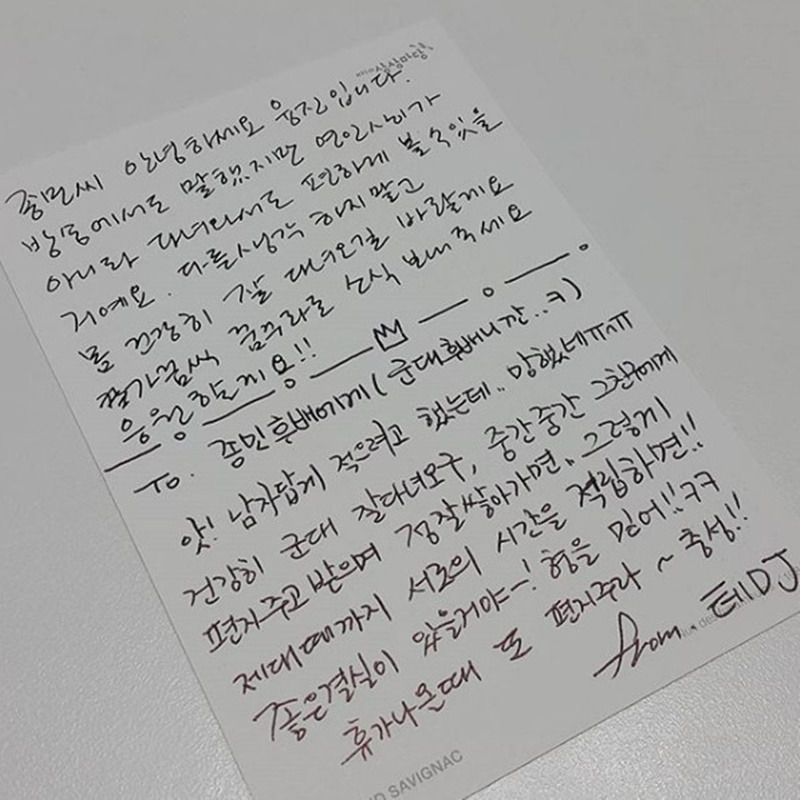 상상마당
종민씨 안녕하세요 웅진입니다.
방송에서도 말했지만 연인사이가
아니라 다녀와서도 편하게 볼수있을
거예요. 다른생각 하지말고
몸 건강히 잘 다녀오길 바랄게요
휴가꼼씩 꿈꾸라로 소식 보내주세요
응원할게용!!
To. 종민후배에게(군대후배니깐..ㅋ)
앗! 남자답게 적으려고 했는데.. 망했네ㅠㅠ
건강히 군대 잘다녀오구, 중간중간 그친구에게
편지주고 받으며 정잘쌓아가면.. 그렇게
제대때까지 서로의 시간을 적립하면!!
좋은결실이 있을거야~! 형을 믿어!!ㅋㅋ
휴가나온때 또 편지주라 ~ 충성!!
from 테DJ
ND SAVIGNAC